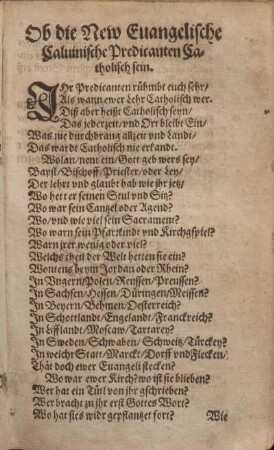 Ob die New Euangelische
Caluinische Predicanten Ca-
tholisch sein.
IHr Predicanten rühmbt euch sehr/
Als wann ewer Lehr Catholisch wer.
Diß aber heißt Catholisch seyn/
Das jederzeit/ vnd Ort bleibt Ein/
Was nie durchdrang allzeit vnd Landt/
Das wardt Catholisch nie erkandt.
Wolan/ nem ein/ Gott geb wers sey/
Bapst/ Bischoff/ Priester/ oder Ley/
Der lehrt vnd glaubt hab wie jhr jetz/
Wo hett er seinen Stul vnd Sitz?
Wo war sein Cantzel oder Agend?
Wo/ vnd wie viel sein Sacrament?
Wo warn sein Pfarrkindt vnd Kirchgspiel?
Warn jrer wenig oder viel?
Welchs theil der Welt hetten sie ein?
Wontens beym Jordan oder Rhein?
In Vngern/ Polen/ Reussen/ Preussen?
In Sachsen/ Hessen/ Düringen/ Meissen?
In Beyern/ Behmen/ Oesterreich?
In Schottlandt/ Engelandt/ Franckreich?
In Lifflandt/ Moscaw/ Tartarey?
In Sweden/ Schwaben/ Schweitz/ Türckey?
In welchr Statt/ Marckt/ Dorff vnd Flecken/
Thät doch ewer Euangeli stecken?
Wo war ewer Kirch? wo ist sie blieben?
Wer hat ein Tütl von jhr gschrieben?
Wer bracht zu jhr erst Gottes Wort?
Wo hat sies widr gepflantzet fort?
Wie